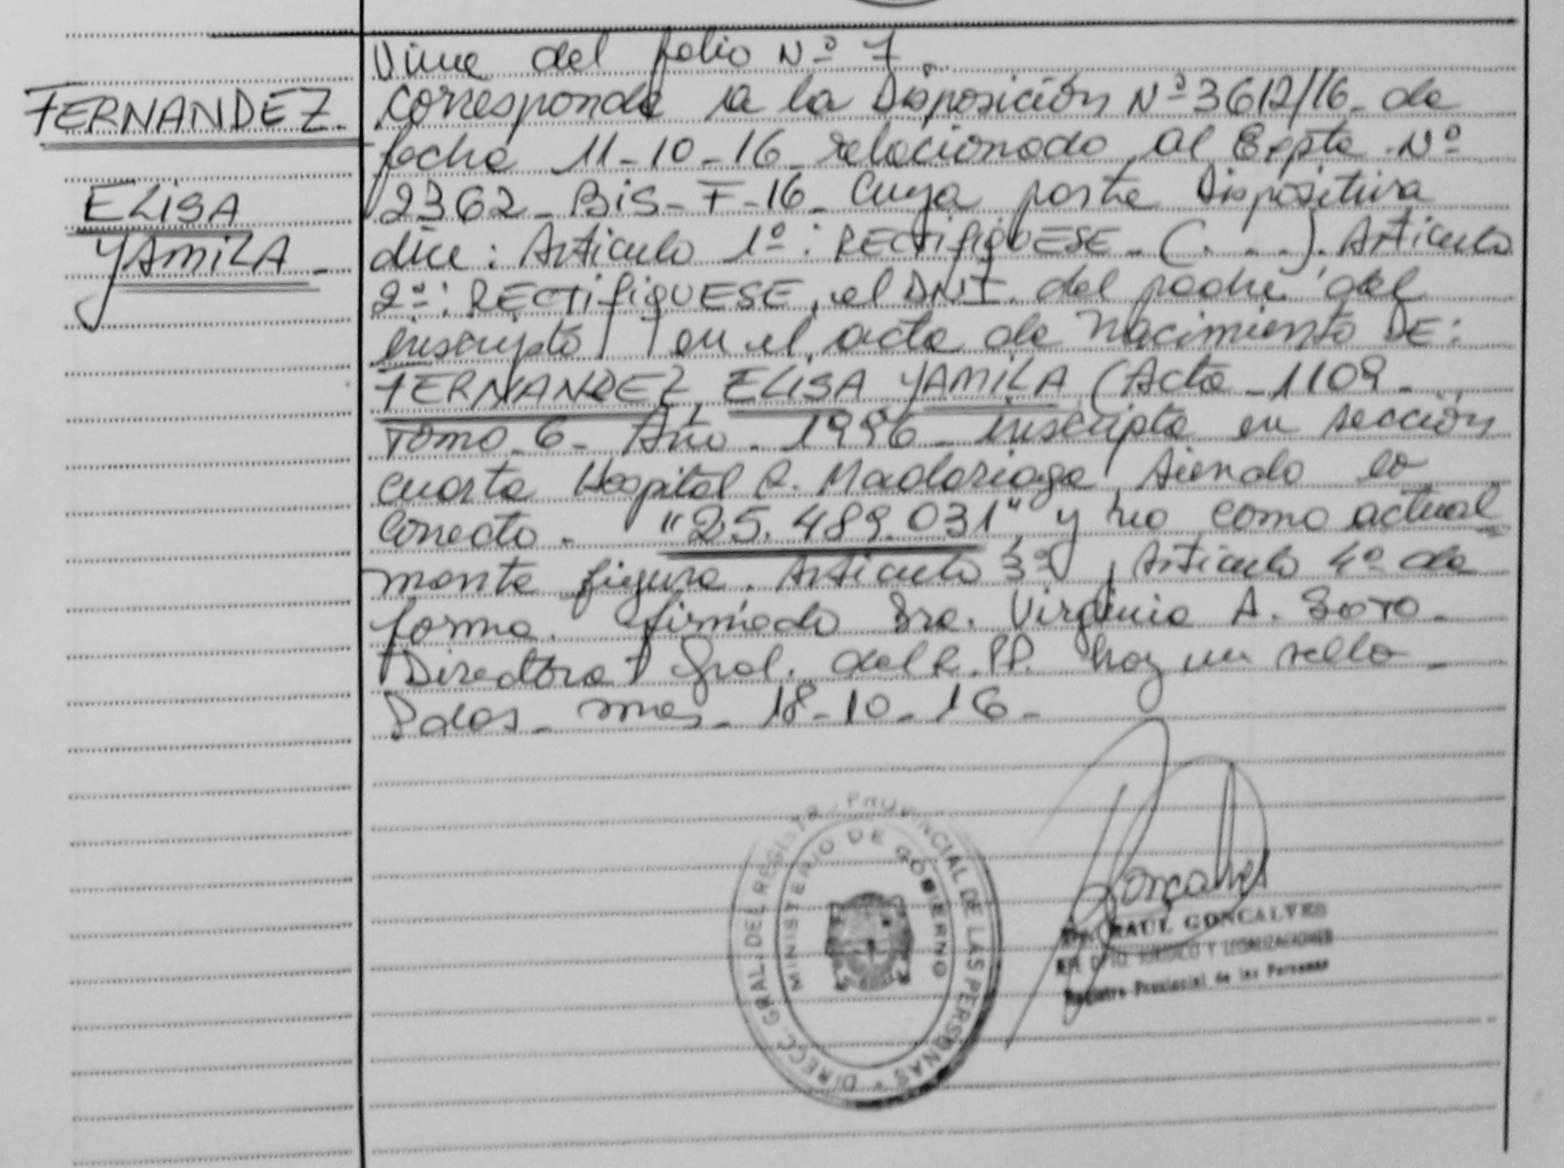 Viene del folio Nº 7.
FERNANDEZ. corresponde a la Disposición Nº 3612/16 de
fecha 11-10-16 relacionado al Expte. Nº
ELISA 2362-Bis-F-16 cuya parte Dispositiva
YAMILA dice: Artículo 1º: RECTIFIQUESE - (...). Artículo
2º: RECTIFIQUESE, el DNI. del padre del
inscripto en el acta de Nacimiento DE:
FERNANDEZ, ELISA YAMILA (Acta 1109 -
Tomo 6 - Año - 1996 - inscripta en sección
cuarta Hospital R. Madariaga, siendo lo
correcto - "25.489.031" y no como actual
mente figura. Artículo 3º, Artículo 4º de
forma. firmado Sra. Virginia A. Soto -
Directora Gral. del R.PP. hay un sello -
Pdas - mnes - 18-10-16 -
DIRECC. GRAL. DEL REGISTR. PROVINCIAL DE LAS PERSONAS
MINISTERIO DE GOBIERNO
RAUL GONCALVES
DPTO. JURIDICO Y LEGALIZACIONES
Registro Provincial de las Personas